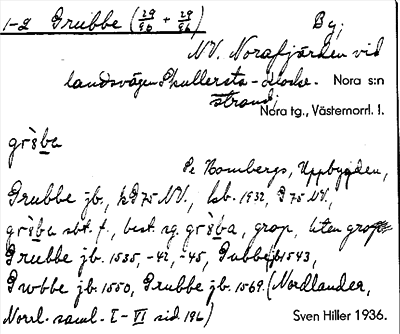 1-2 Grubbe (29/96 + 29/96) By,
NV. Norafjärden vid
landsvägen Skullersta-Hocke- Nora s:n
strand; Nora tg., Västernorrl. l.
Se Hombergs, Uppbygden,
Grubbe jb., kb 1932,
sbt. f., best. sg. grop, liten grop
Grubbe jb. 1535, -42, -45, Gubbe jb 1543,
jb. 1550, Grubbe jb. 1569. (Nordlander,
Norrl. saml. I-VI sid 196) Sven Hiller 1936.